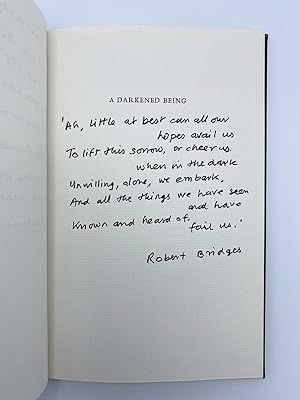 A DARKENED BEING
'Ah, little at best can all our
hopes avail us
To lift this sorrow, or cheer us
when in the dark
Unwilling, alone, we embark,
And all the things we have seen
and have
Known and heard of, fail us.'
Robert Bridges